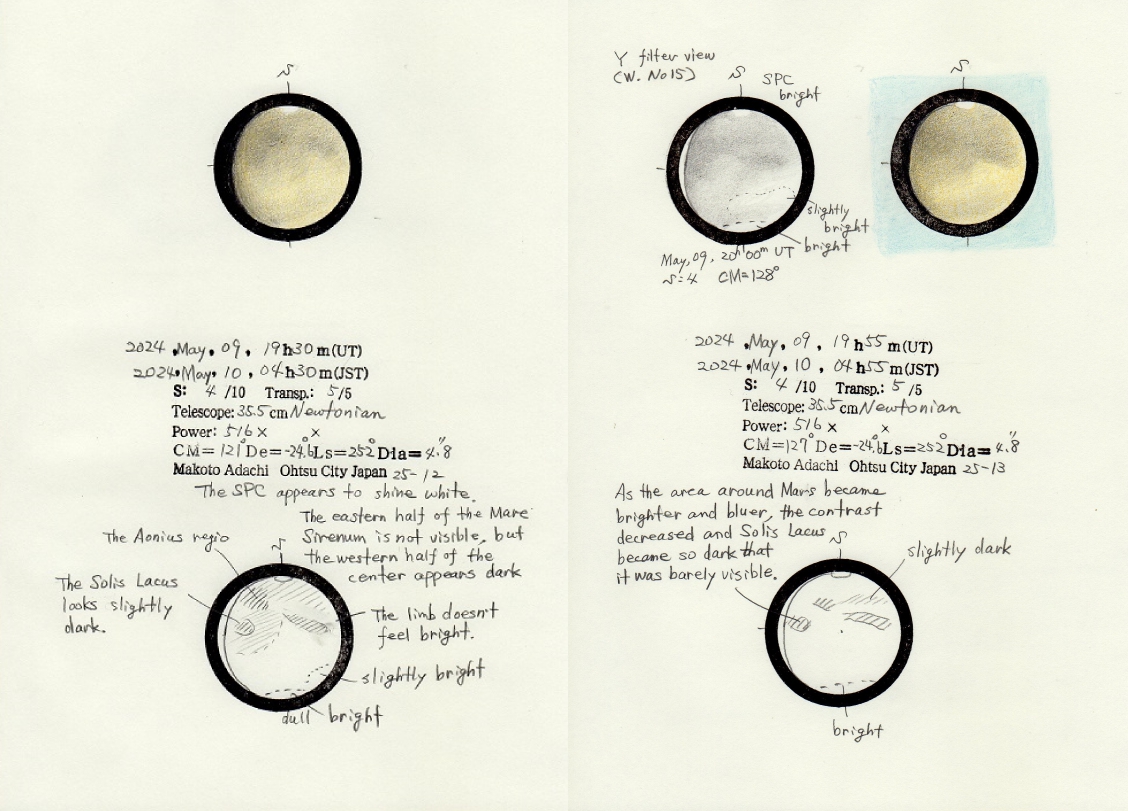 S
2024 .May, 09, 19h30m(UT)
2024.May, 10, 04h30m(JST)
S: 4 /10 Transp.: 5/5
Telescope: 35.5cm Newtonian
Power: 516 x x
CM=121° De=-24.6° Ls=252° Dia=4.8"
Makoto Adachi Ohtsu City Japan 25-12
The SPC appears to shine white.
The eastern half of the Mare
Sirenum is not visible, but
the western half of the
center appears dark
The Aonius regio
S
The Solis Lacus
looks slightly
dark.
The limb doesn't
feel bright.
slightly bright
dull bright
Y filter view
(W. No15)
S
SPC
bright
S
slightly
bright
bright
May, 09, 20h00m UT
S=4 CM=128°
2024 .May, 09, 19h55m(UT)
2024.May, 10, 04h55m(JST)
S: 4 /10 Transp.: 5/5
Telescope: 35.5cm Newtonian
Power: 516 x x
CM=127° De=-24.6° Ls=252° Dia=4.8"
Makoto Adachi Ohtsu City Japan 25-13
As the area around Mars became
brighter and bluer, the contrast
decreased and Solis Lacus
became so dark that
it was barely visible.
S
slightly dark
bright